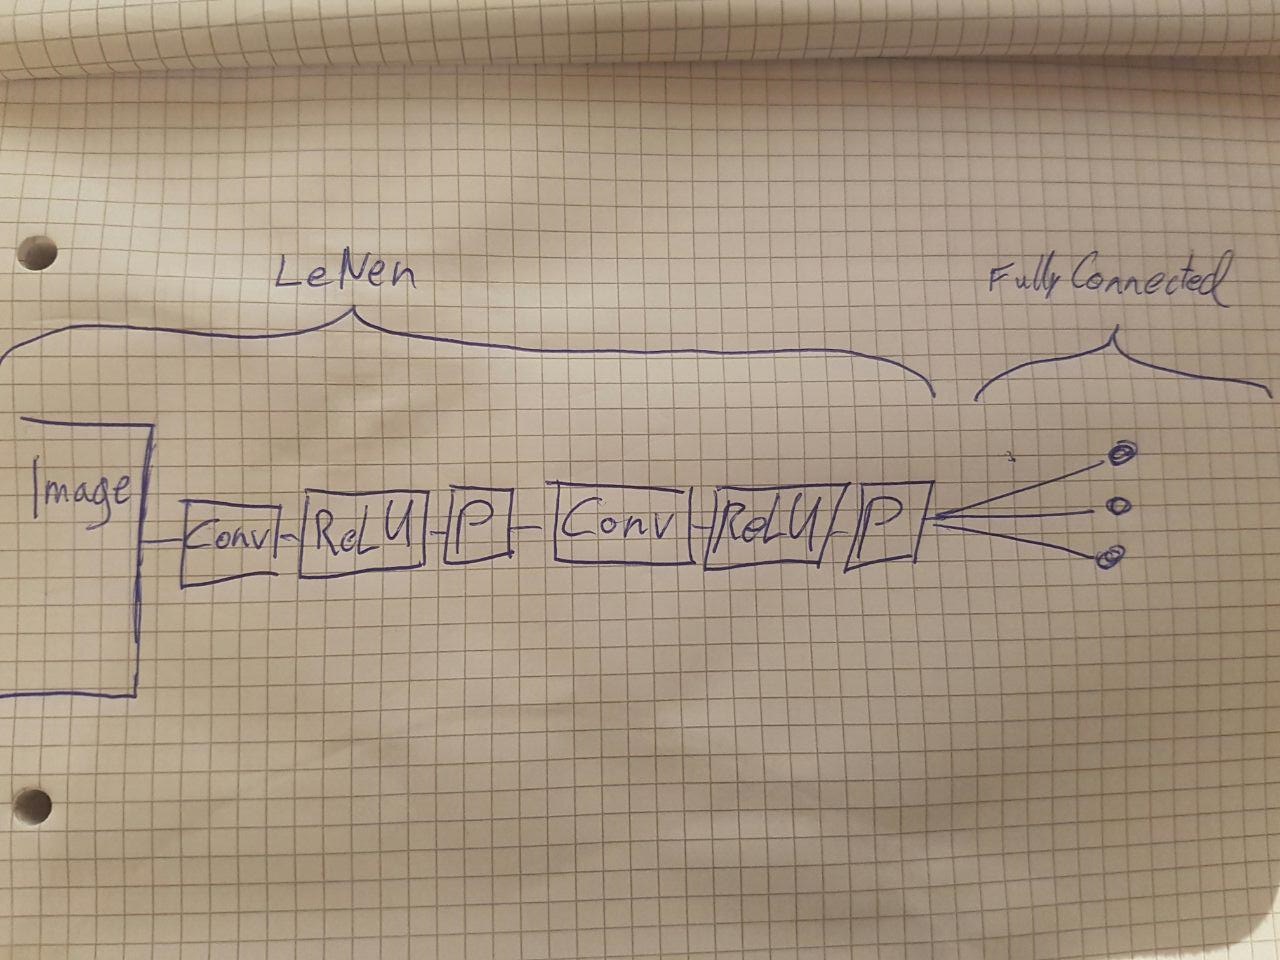 LeNen
Fully Connected
Image
Conv ReLU P Conv ReLU P